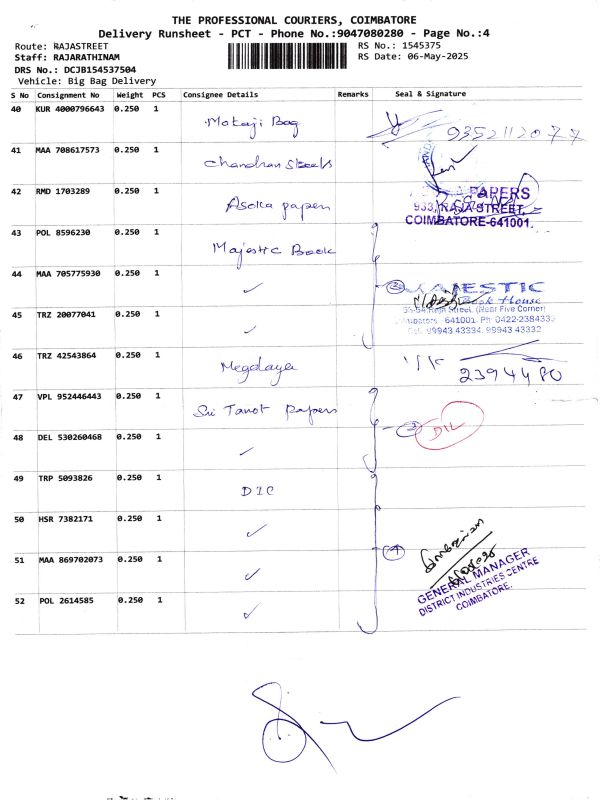 THE PROFESSIONAL COURIERS, COIMBATORE
Delivery Runsheet - PCT - Phone No.:9047080280 - Page No.:4
Route: RAJASTREET
RS No.: 1545375
Staff: RAJARATHINAM
RS Date: 06-May-2025
DRS No.: DCJB154537504
Vehicle: Big Bag Delivery
S No Consignment No Weight PCS Consignee Details Remarks Seal & Signature
40 KUR 4000796643 0.250 1 Mokaji Bag 9352112077
41 MAA 708617573 0.250 1 Chandran Steels
42 RMD 1703289 0.250 1 Asoka papers
PAPERS
933, RAJA STREET,
COIMBATORE-641001.
43 POL 8596230 0.250 1 Majestic Book
44 MAA 705775930 0.250 1 ✓ 3
MAJESTIC
Book House
Raja Street, (Near Five Corner)
641001. Ph: 0422-2384333
Cell: 99943 43334, 99943 43332
45 TRZ 20077041 0.250 1 ✓
46 TRZ 42543864 0.250 1 Megalaya 2394480
47 VPL 952446443 0.250 1 Sri Tanot papers
2 DIL
48 DEL 530260468 0.250 1 ✓
49 TRP 5093826 0.250 1 DIC
50 HSR 7382171 0.250 1 ✓
4
51 MAA 869702073 0.250 1 ✓
GENERAL MANAGER
DISTRICT INDUSTRIES CENTRE
COIMBATORE.
52 POL 2614585 0.250 1 ✓